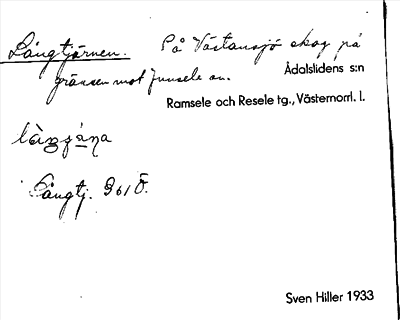 Långtjärnen. På Västansjö skog på
gränsen mot Junsele sn.
Ådalslidens s:n
Ramsele och Resele tg., Västernorrl. l.
Långtj. 961 Ö.
Sven Hiller 1933